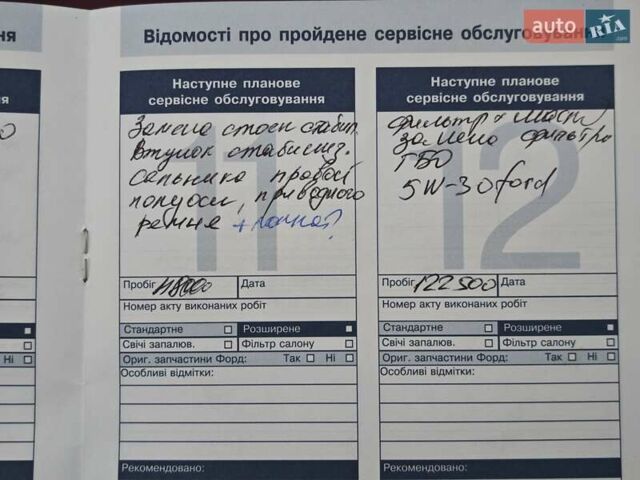 ня
Відомості про пройдене сервісне обслуговування
auto RIA .com
Наступне планове
сервісне обслуговування
Замена стоек стабил.
Втулок стабилиз.
Сальника правой
полуоси, приводного
ремня +
11
Пробіг Дата
Номер акту виконаних робіт
Стандартне Розширене
Свічі запалюв. Фільтр салону
Ориг. запчастини Форд: Так Ні
Особливі відмітки:
Рекомендовано:
Наступне планове
сервісне обслуговування
фильтр
замена фильтра
ГБО
5W-30 ford
12
Пробіг 122500 Дата
Номер акту виконаних робіт
Стандартне Розширене
Свічі запалюв. Фільтр салону
Ориг. запчастини Форд: Так Ні
Особливі відмітки:
Рекомендовано:
Ні